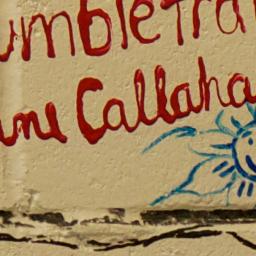 umbletra
une Callaha